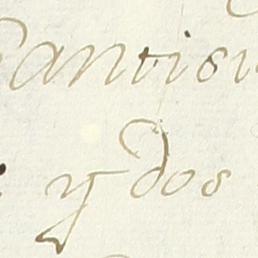 Santisi
y dos